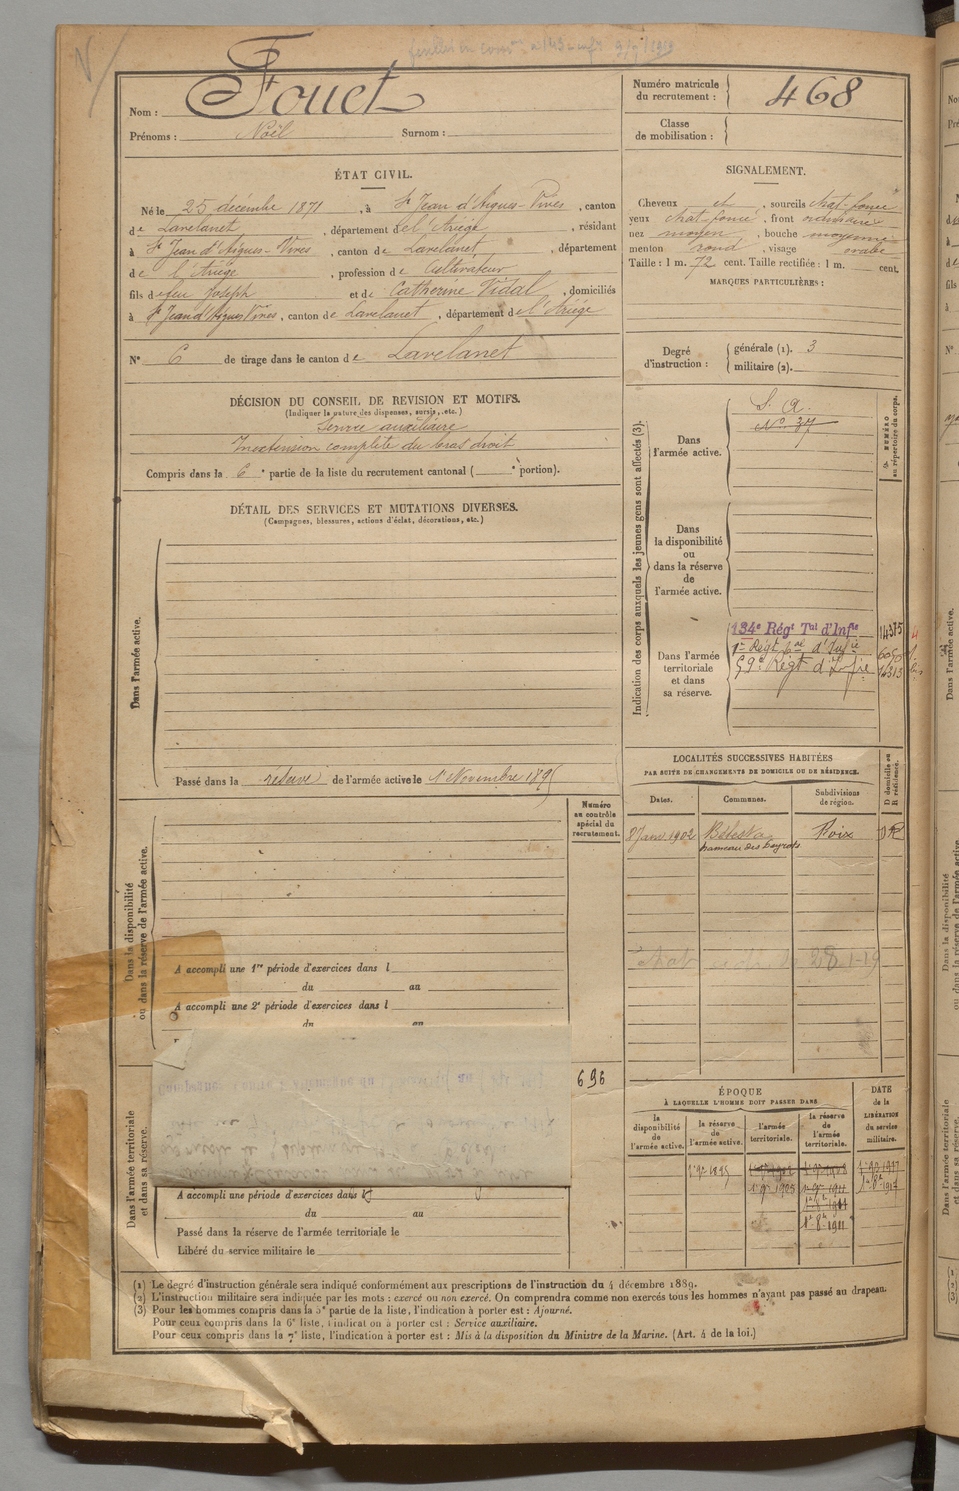 N
Nom : Fouet
Prénoms : Noël Surnom :
Numéro matricule du recrutement : 468
Classe de mobilisation :
ÉTAT CIVIL.
Né le 25 décembre 1871, à St Jean d'Aigues-Vives, canton
de Lavelanet, département de l'Ariège, résidant
à St Jean d'Aigues-Vives, canton de Lavelanet, département
de l'Ariège, profession de Cultivateur
fils de feu Joseph et de Catherine Vidal, domiciliés
à St Jean d'Aigues Vives, canton de Lavelanet, département de l'Ariège
N° 6 de tirage dans le canton de Lavelanet
SIGNALEMENT.
Cheveux et, sourcils chat-foncé
yeux chat-foncé, front ordinaire
nez moyen, bouche moyenne
menton rond, visage ovale
Taille : 1 m. 72 cent. Taille rectifiée : 1 m. cent.
MARQUES PARTICULIÈRES :
Degré d'instruction : générale (1). 3
militaire (2).
DÉCISION DU CONSEIL DE REVISION ET MOTIFS.
(Indiquer la nature des dispenses, sursis, etc.)
Service auxiliaire
Inextension complète du bras droit
Compris dans la 6e partie de la liste du recrutement cantonal ( e portion).
DÉTAIL DES SERVICES ET MUTATIONS DIVERSES.
(Campagnes, blessures, actions d'éclat, décorations, etc.)
Dans l'armée active.
Passé dans la réserve de l'armée active le 1er Novembre 1895
Indication des corps auxquels les jeunes gens sont affectés (3).
NUMÉRO au répertoire du corps.
Dans l'armée active.
S. A.
N° 37
Dans la disponibilité ou dans la réserve de l'armée active.
Dans l'armée territoriale et dans sa réserve.
134e Régt Tal d'Infie
14375
59e Régt d'Infie
LOCALITÉS SUCCESSIVES HABITÉES
PAR SUITE DE CHANGEMENTS DE DOMICILE OU DE RÉSIDENCE.
Dates. Communes. Subdivisions de région. D domicile ou R résidence.
1902 Bélesta Foix
hameau des
28-1-19
Numéro au contrôle spécial du recrutement.
Dans la disponibilité ou dans la réserve de l'armée active.
A accompli une 1re période d'exercices dans l
du au
A accompli une 2e période d'exercices dans l
du au
696
Dans l'armée territoriale et dans sa réserve.
A accompli une période d'exercices dans l
du au
Passé dans la réserve de l'armée territoriale le
Libéré du service militaire le
ÉPOQUE
À LAQUELLE L'HOMME DOIT PASSER DANS
la disponibilité de l'armée active. la réserve de l'armée active. l'armée territoriale. la réserve de l'armée territoriale. DATE de la LIBÉRATION du service militaire.
1er 9bre 1895
1er 9bre 1905
1er 8bre 1911
1er 8bre 1917
(1) Le degré d'instruction générale sera indiqué conformément aux prescriptions de l'instruction du 4 décembre 1889.
(2) L'instruction militaire sera indiquée par les mots : exercé ou non exercé. On comprendra comme non exercés tous les hommes n'ayant pas passé au drapeau.
(3) Pour les hommes compris dans la 5e partie de la liste, l'indication à porter est : Ajourné.
Pour ceux compris dans la 6e liste, l'indication à porter est : Service auxiliaire.
Pour ceux compris dans la 7e liste, l'indication à porter est : Mis à la disposition du Ministre de la Marine. (Art. 4 de la loi.)